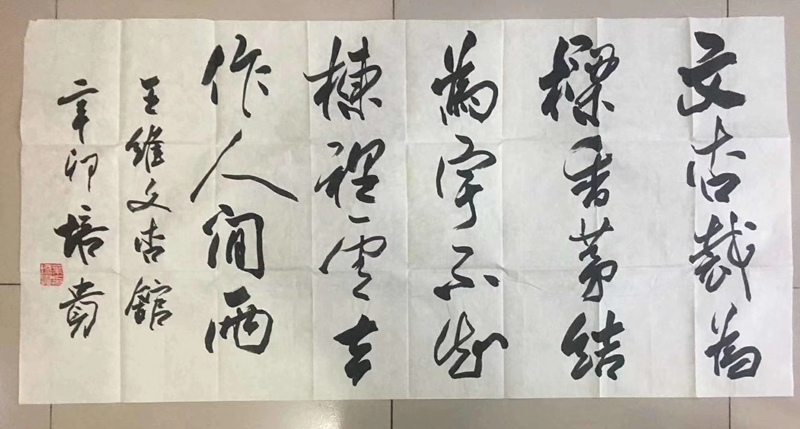 文杏裁為
樑香茅結
為宇不知
棟裡雲去
作人間雨
王維文杏館
辛卯培貴